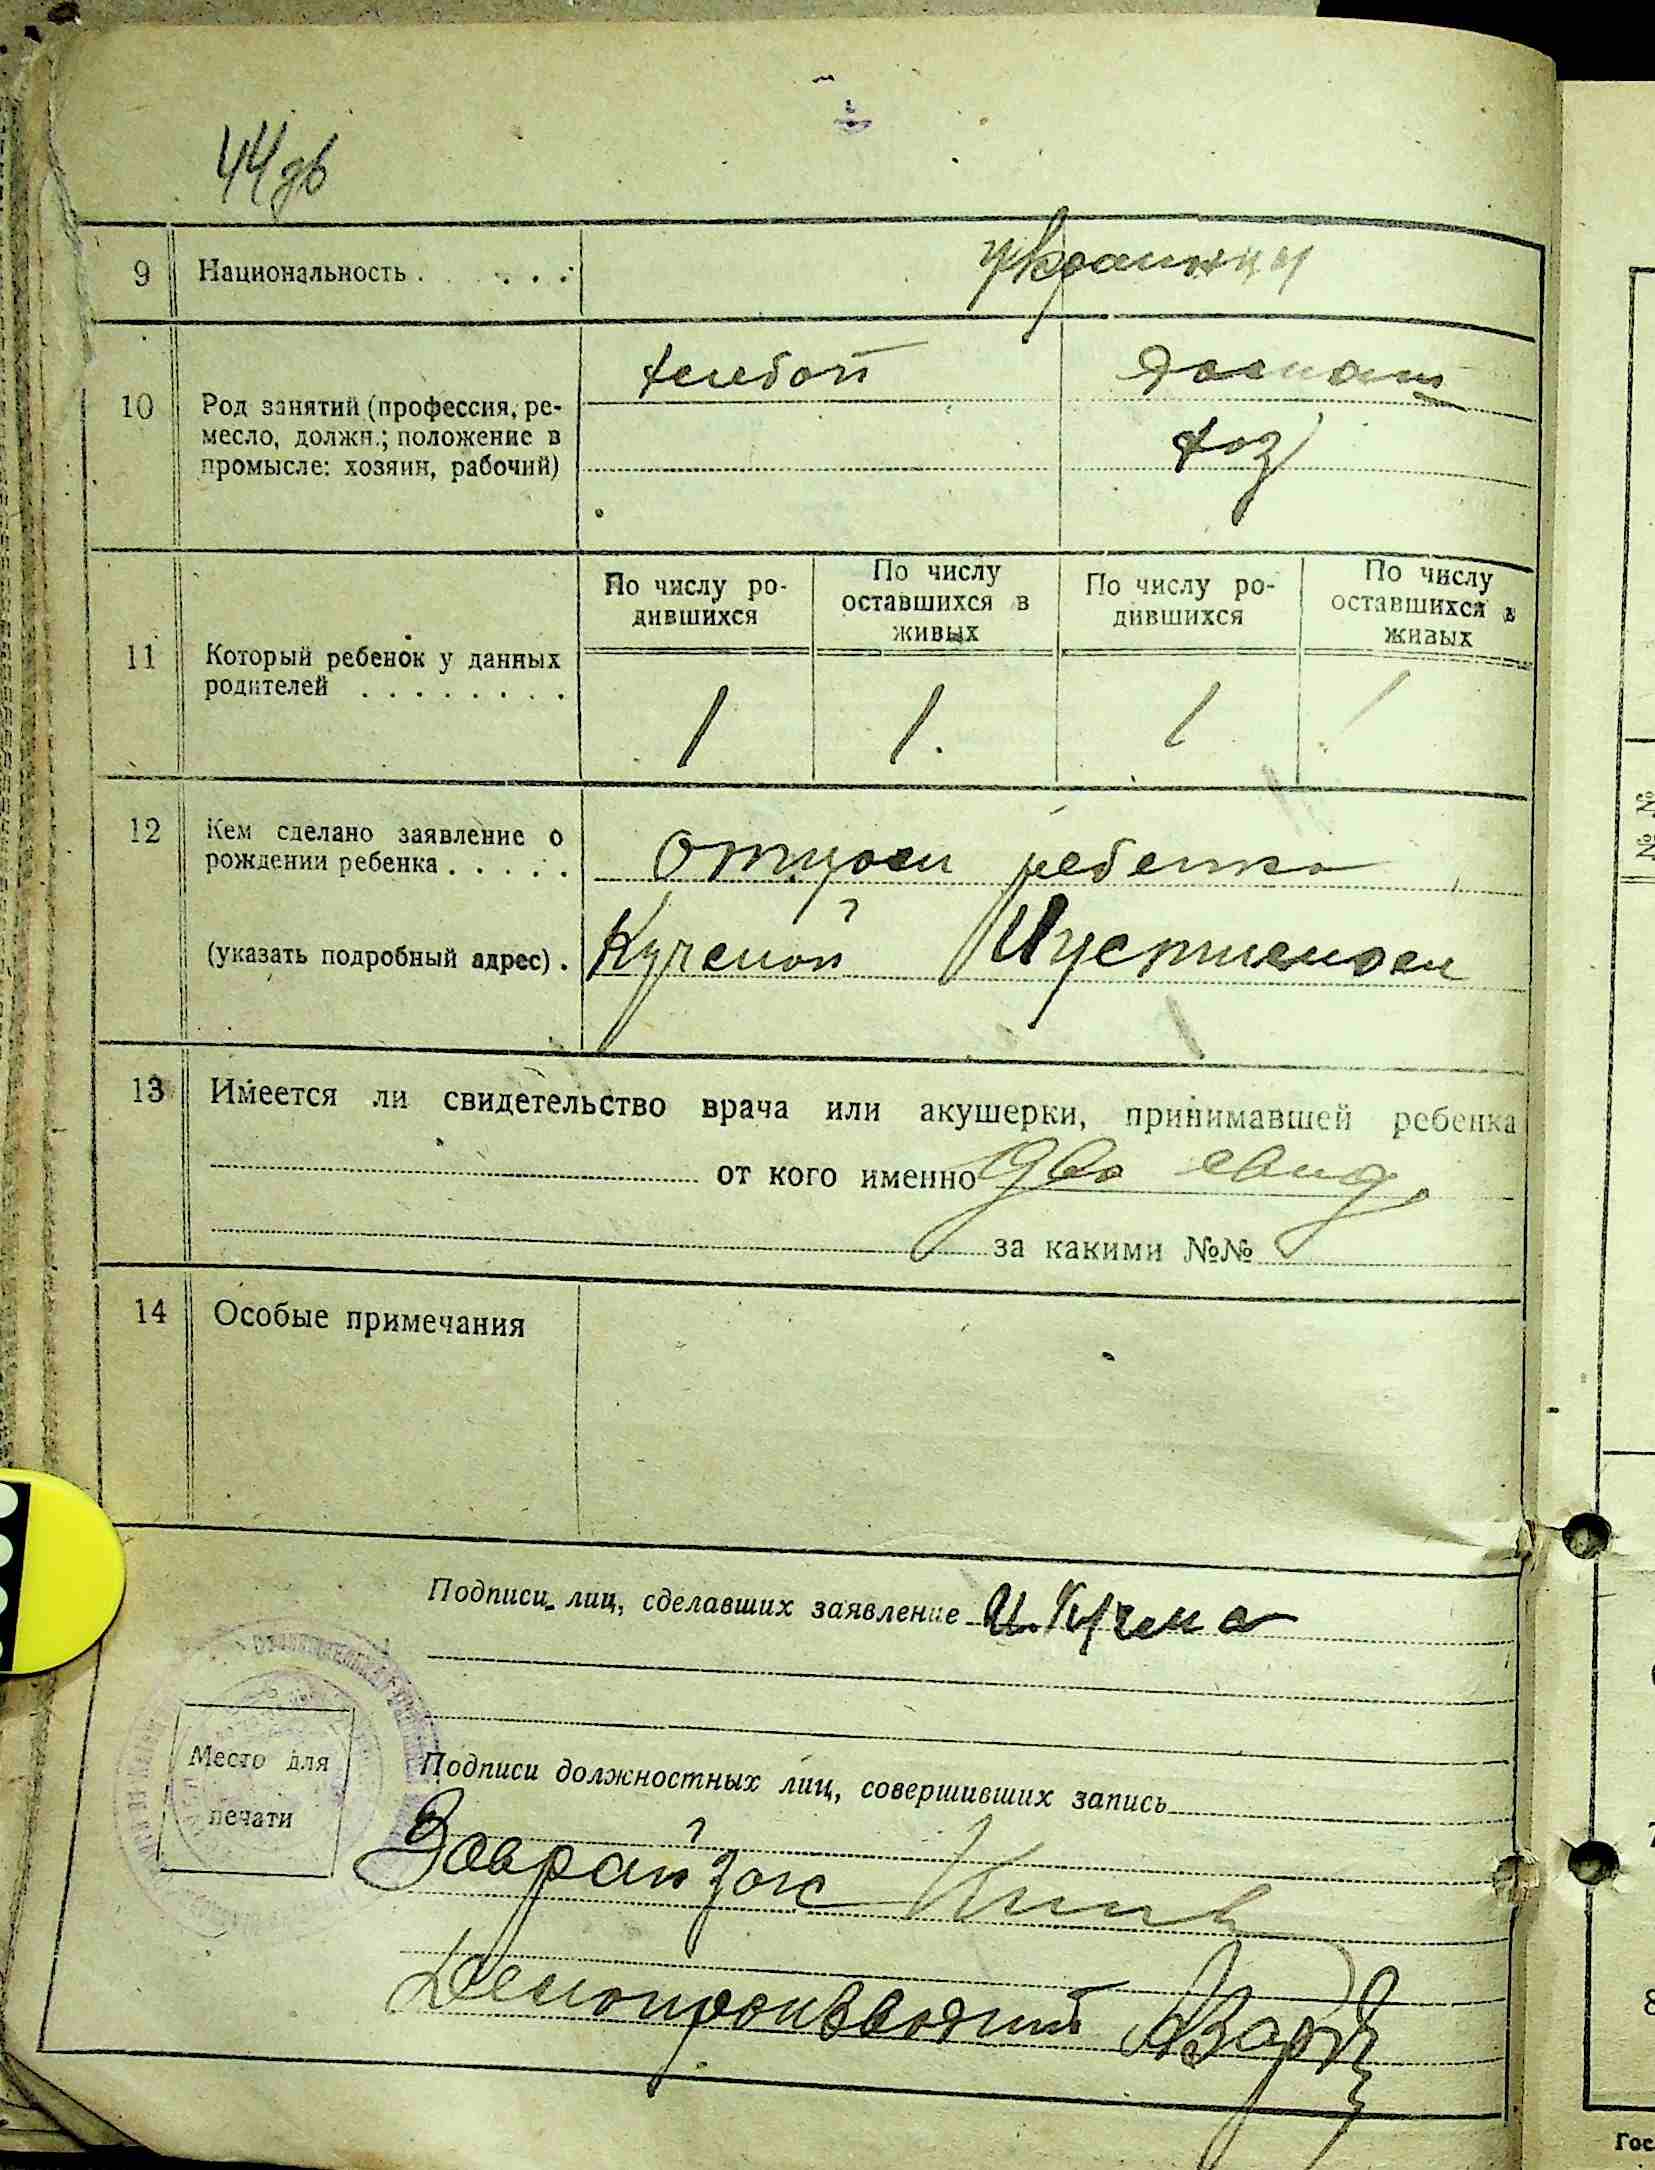 44 дв
9 Национальность . . . . . . украинцы
10 Род занятий (профессия, ре-
месло, должн.; положение в
промысле: хозяин, рабочий)
хлебоп домаш
хоз
11 Который ребенок у данных
родителей . . . . . . . .
По числу ро-
дившихся
По числу
оставшихся в
живых
По числу ро-
дившихся
По числу
оставшихся в
живых
1 1. 1 1
12 Кем сделано заявление о
рождении ребенка . . . . . Отцом ребенка
(указать подробный адрес) . Кучемой Иустимом
13 Имеется ли свидетельство врача или акушерки, принимавшей ребенка
от кого именно два свид.
за какими №№
14 Особые примечания
Подписи лиц, сделавших заявление И. Кучема
Место для
печати
Подписи должностных лиц, совершивших запись
Заврайзагс
Делопроизводит
Гос